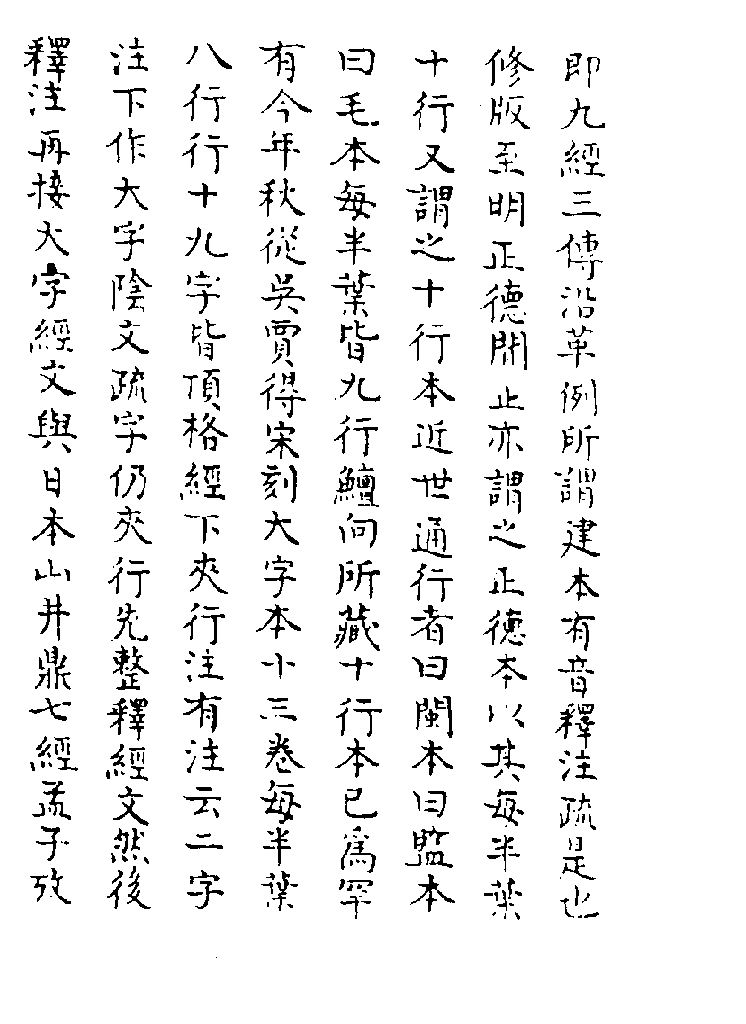 即九經三傳沿革例所謂建本有音釋注疏是也
修版至明正德閒止亦謂之正德本以其每半葉
十行又謂之十行本近世通行者曰閩本曰監本
曰毛本每半葉皆九行鱣向所藏十行本已爲罕
有今年秋從吳賈得宋刻大字本十三卷每半葉
八行行十九字皆頂格經下夾行注有注云二字
注下作大字陰文疏字仍夾行先整釋經文然後
釋注再接大字經文與日本山井鼎七經孟子攷